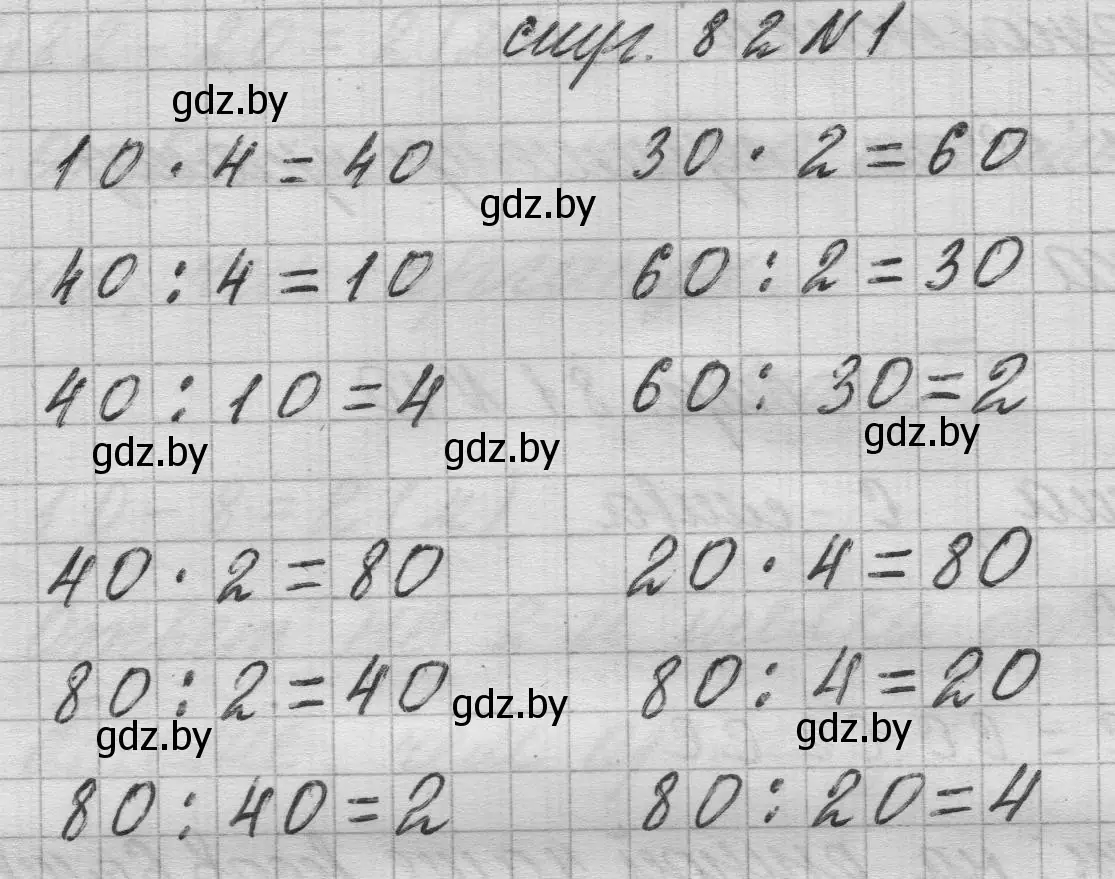 стр. 82 N 1
gdz.by
10 · 4 = 40 30 · 2 = 60
gdz.by
40 : 4 = 10 60 : 2 = 30
40 : 10 = 4 60 : 30 = 2
gdz.by gdz.by gdz.by
40 · 2 = 80 20 · 4 = 80
80 : 2 = 40 80 : 4 = 20
gdz.by gdz.by gdz.by
80 : 40 = 2 80 : 20 = 4